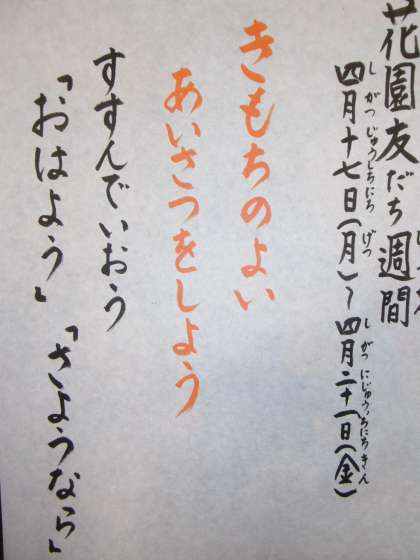 花園友だち週間
四月十七日(月)~四月二十一日(金)
しがつじゅうしちにち げつ しがつにじゅういちにち きん
きもちのよい
あいさつをしよう
すすんでいおう
「おはよう」「さようなら」